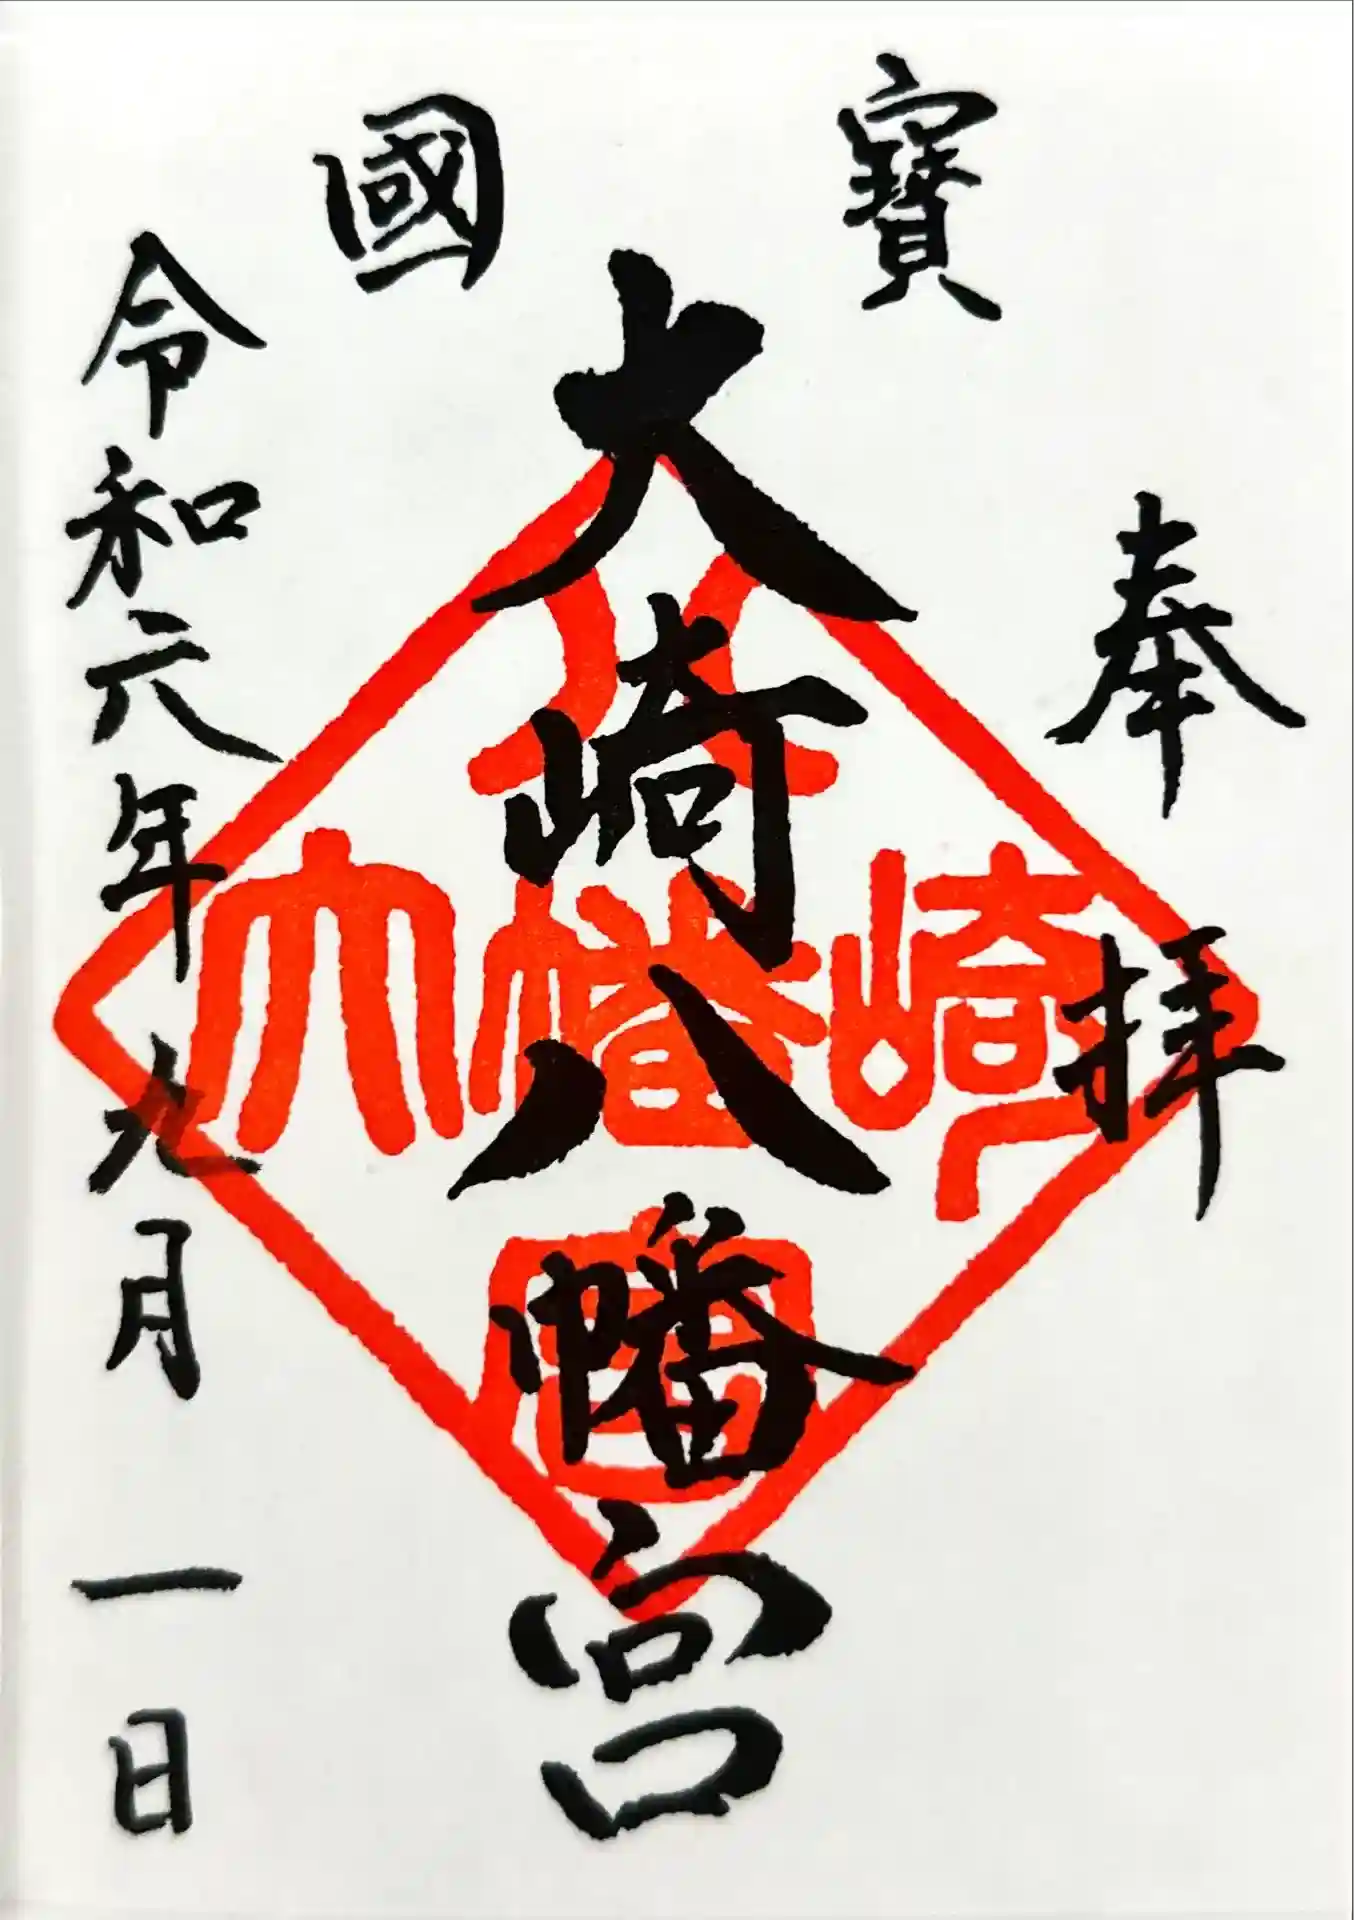 奉拝
寶國
大崎八幡宮
令和元年九月一日
八
大幡崎
宮